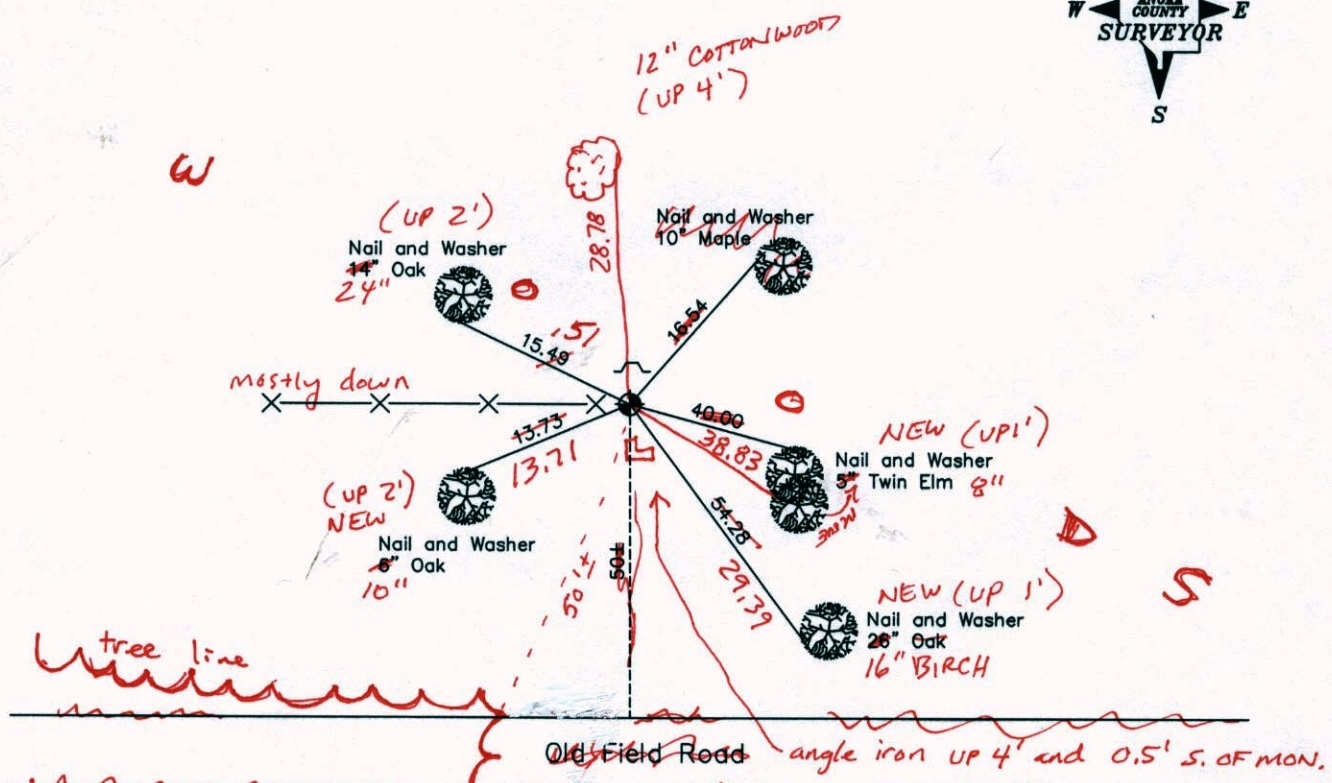 ANOKA
W COUNTY E
SURVEYOR
S
12" COTTONWOOD
(UP 4')
W
(UP 2')
Nail and Washer
14" Oak
24"
28.78
Nail and Washer
10" Maple
16.54
15.49
.51
mostly down
40.00
38.83
NEW (UP 1')
Nail and Washer
5" Twin Elm 8"
13.73
13.71
(UP 2')
NEW
Nail and Washer
6" Oak
10"
54.28
29.39
50±
50'±
D
S
NEW (UP 1')
Nail and Washer
26" Oak
16" BIRCH
tree line
Old Field Road
angle iron UP 4' and 0.5' S. OF MON.